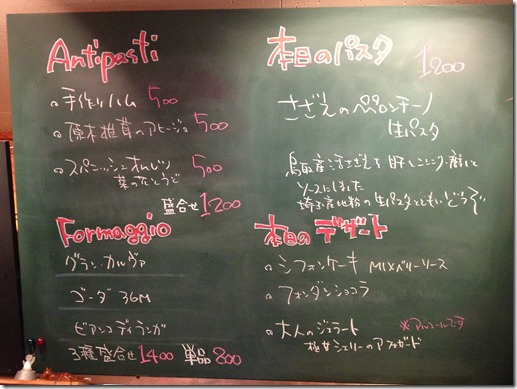 Antipasti
手作りハム 500
原木椎茸のアヒージョ 500
スパニッシュオムレツ 500
菜の花とうど
盛合せ 1200
Formaggio
グラン・カルヴァ
ゴーダ 36M
ビアンコ ディ ランガ
3種盛合せ 1400 単品 800
本日のパスタ 1200
さざえのペペロンチーノ
生パスタ
鳥取産活さざえを肝と
ソースにしました
埼玉産地粉の生パスタとともにどうぞ
本日のデザート
シフォンケーキ MIXベリーソース
フォンダンショコラ
大人のジェラート ※アルコールです
極甘シェリーのアフォガード